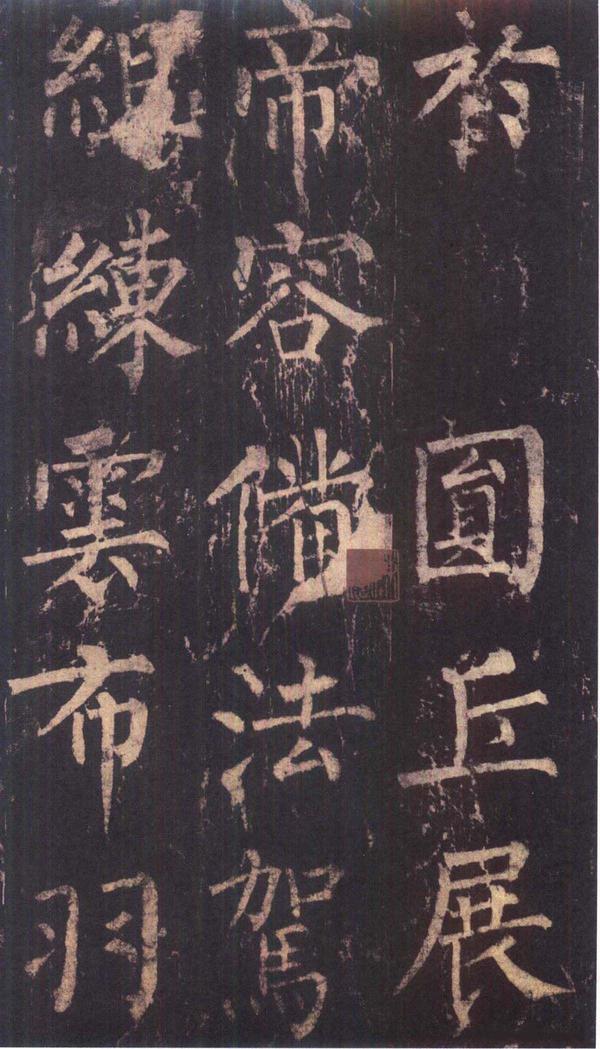 於　圎丘展
帝容備法駕
組練雲布羽